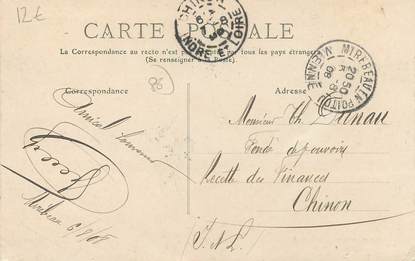 12€
CARTE POSTALE
La Correspondance au recto n'est pas par tous les pays étrangers
(Se renseigner à la Poste).
CHINON
INDRE-ET-LOIRE
MIREBEAU-EN-POITOU
VIENNE
20 50
08
Correspondance
Adresse
86
Amical
Mirebeau 6/8/08
Monsieur Th.
Fondé de pouvoirs
Recette des Finances
Chinon
I. & L.